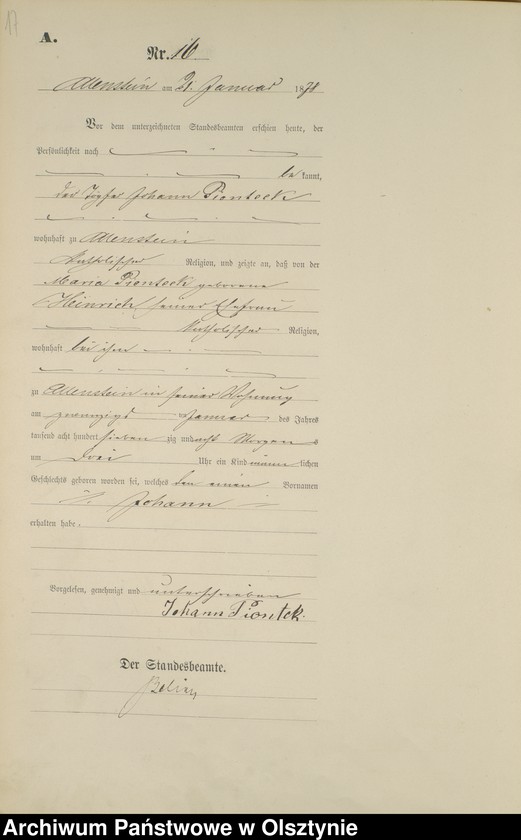 17
A.
Nr. 16
Allenstein am 21. Januar 1878
Vor dem unterzeichneten Standesbeamten erschien heute, der
Persönlichkeit nach
bekannt,
der Töpfer Johann Pionteck
wohnhaft zu Allenstein
katholischer Religion, und zeigte an, daß von der
Maria Pionteck geborene
Heinrich seiner Ehefrau
katholischer Religion,
wohnhaft bei ihm
zu Allenstein in seiner Wohnung
am Januar des Jahres
tausend acht hundert siebenzig und acht Morgens
um drei Uhr ein Kind männlichen
Geschlechts geboren worden sei, welches den einen Vornamen
Johann
erhalten habe.
Vorgelesen, genehmigt und unterschrieben
Johann Piontek.
Der Standesbeamte.
Archiwum Państwowe w Olsztynie